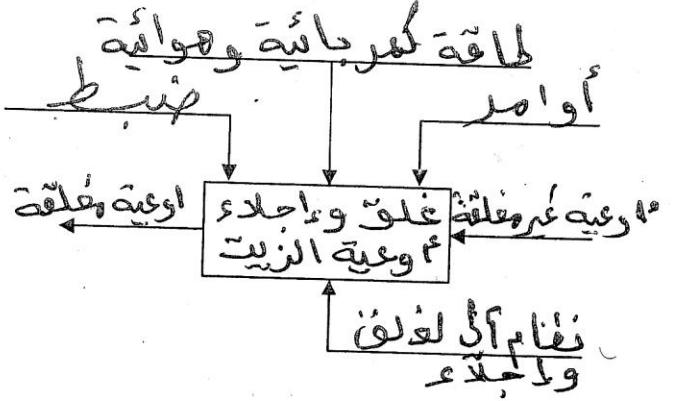 طاقة كهربائية وهوائية
أوامر
ضبط
أوعية غير مغلقة
غلق وإجلاء
أوعية الزيت
اوعية مغلقة
نظام آلي لغلق
وإجلاء